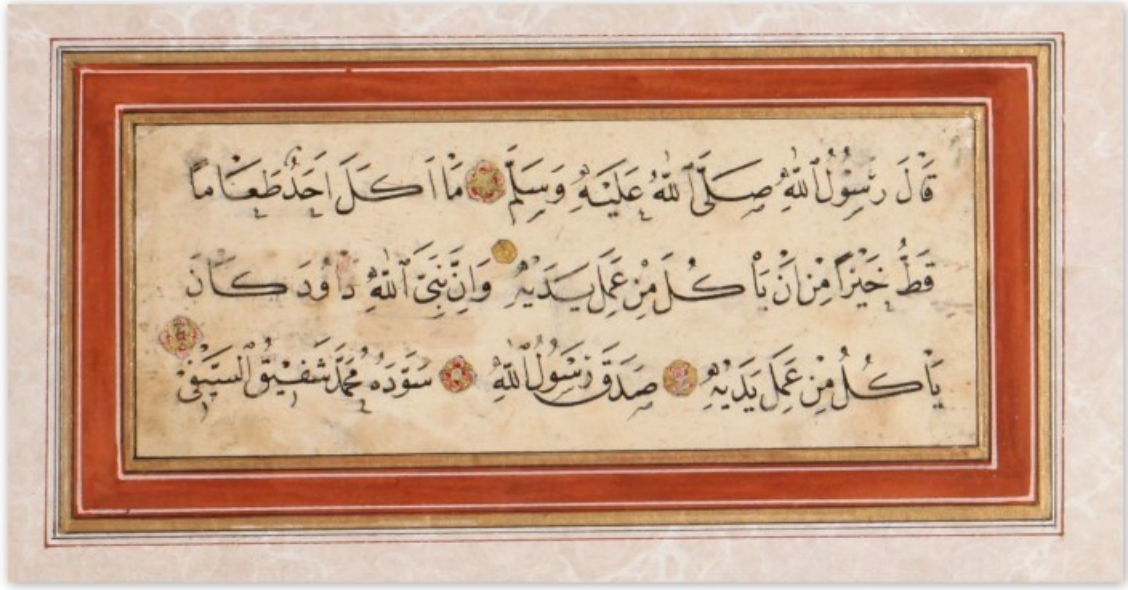 قَالَ رَسُولُ ٱللّٰهِ صَلَّى ٱللّٰهُ عَلَيْهِ وَسَلَّمَ مَا اَكَلَ اَحَدٌ طَعَامًا
قَطُّ خَيْرًا مِنْ اَنْ يَاْكُلَ مِنْ عَمَلِ يَدَيْهِ وَاِنَّ نَبِىَّ ٱللّٰهِ دَاوُدَ كَانَ
يَاْكُلُ مِنْ عَمَلِ يَدَيْهِ صَدَقَ رَسُولُ ٱللّٰهِ سَوَّدَهُ مُحَمَّد شَفِيقُ